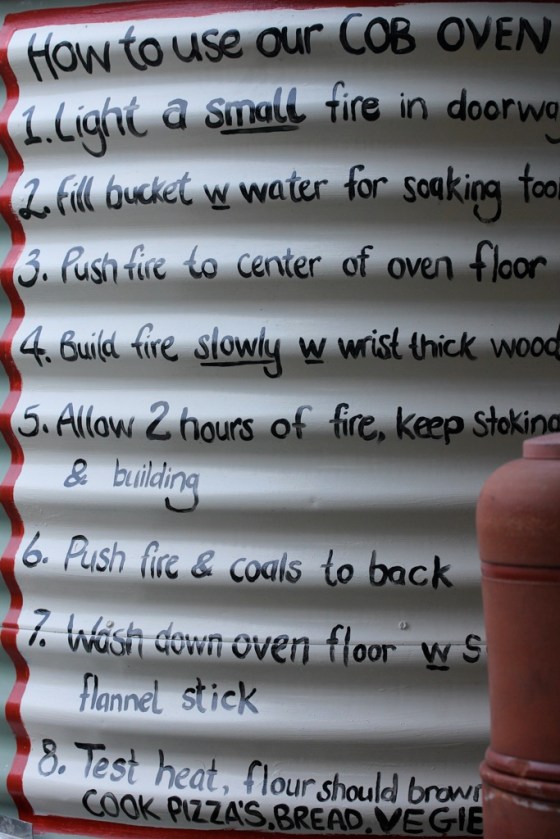 How to use our COB OVEN
1. Light a small fire in doorwa
2. Fill bucket w water for soaking too
3. Push fire to center of oven floor
4. Build fire slowly w wrist thick wood
5. Allow 2 hours of fire, keep stoking
& building
6. Push fire & coals to back
7. Wash down oven floor w s
flannel stick
8. Test heat, flour should brown
COOK PIZZA'S, BREAD, VEGIE